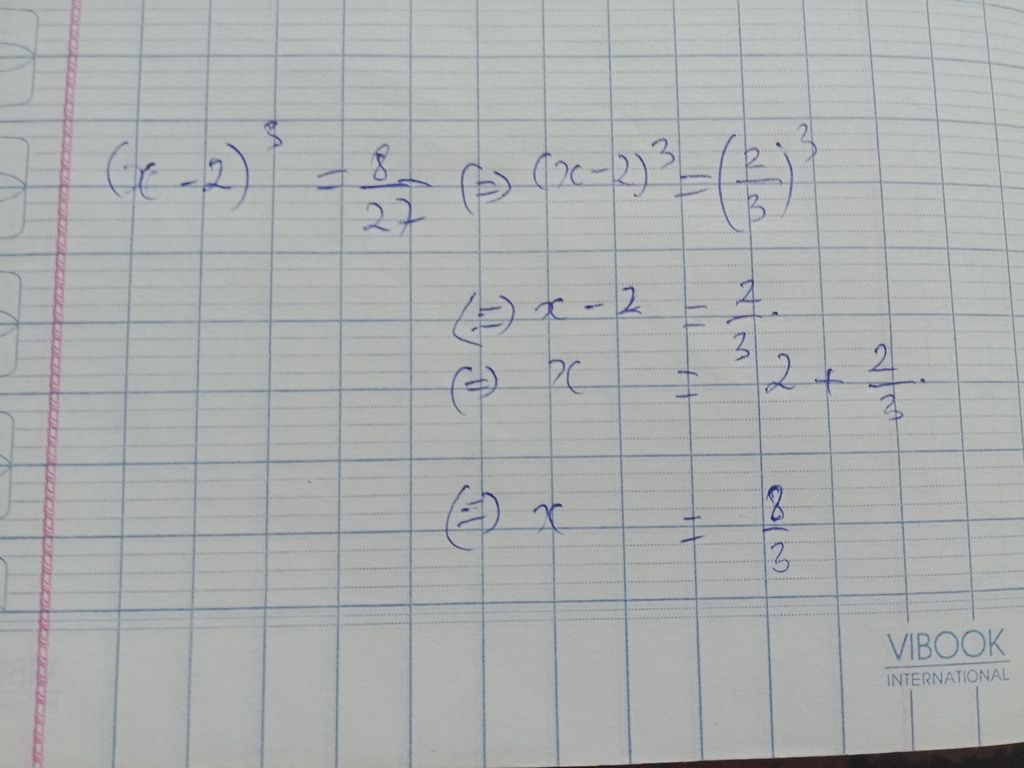 (x - 2)³ = 8/27 (=) (x - 2)³ = (2/3)³
(=) x - 2 = 2/3.
(=) x = 2 + 2/3.
(=) x = 8/3
VIBOOK
INTERNATIONAL